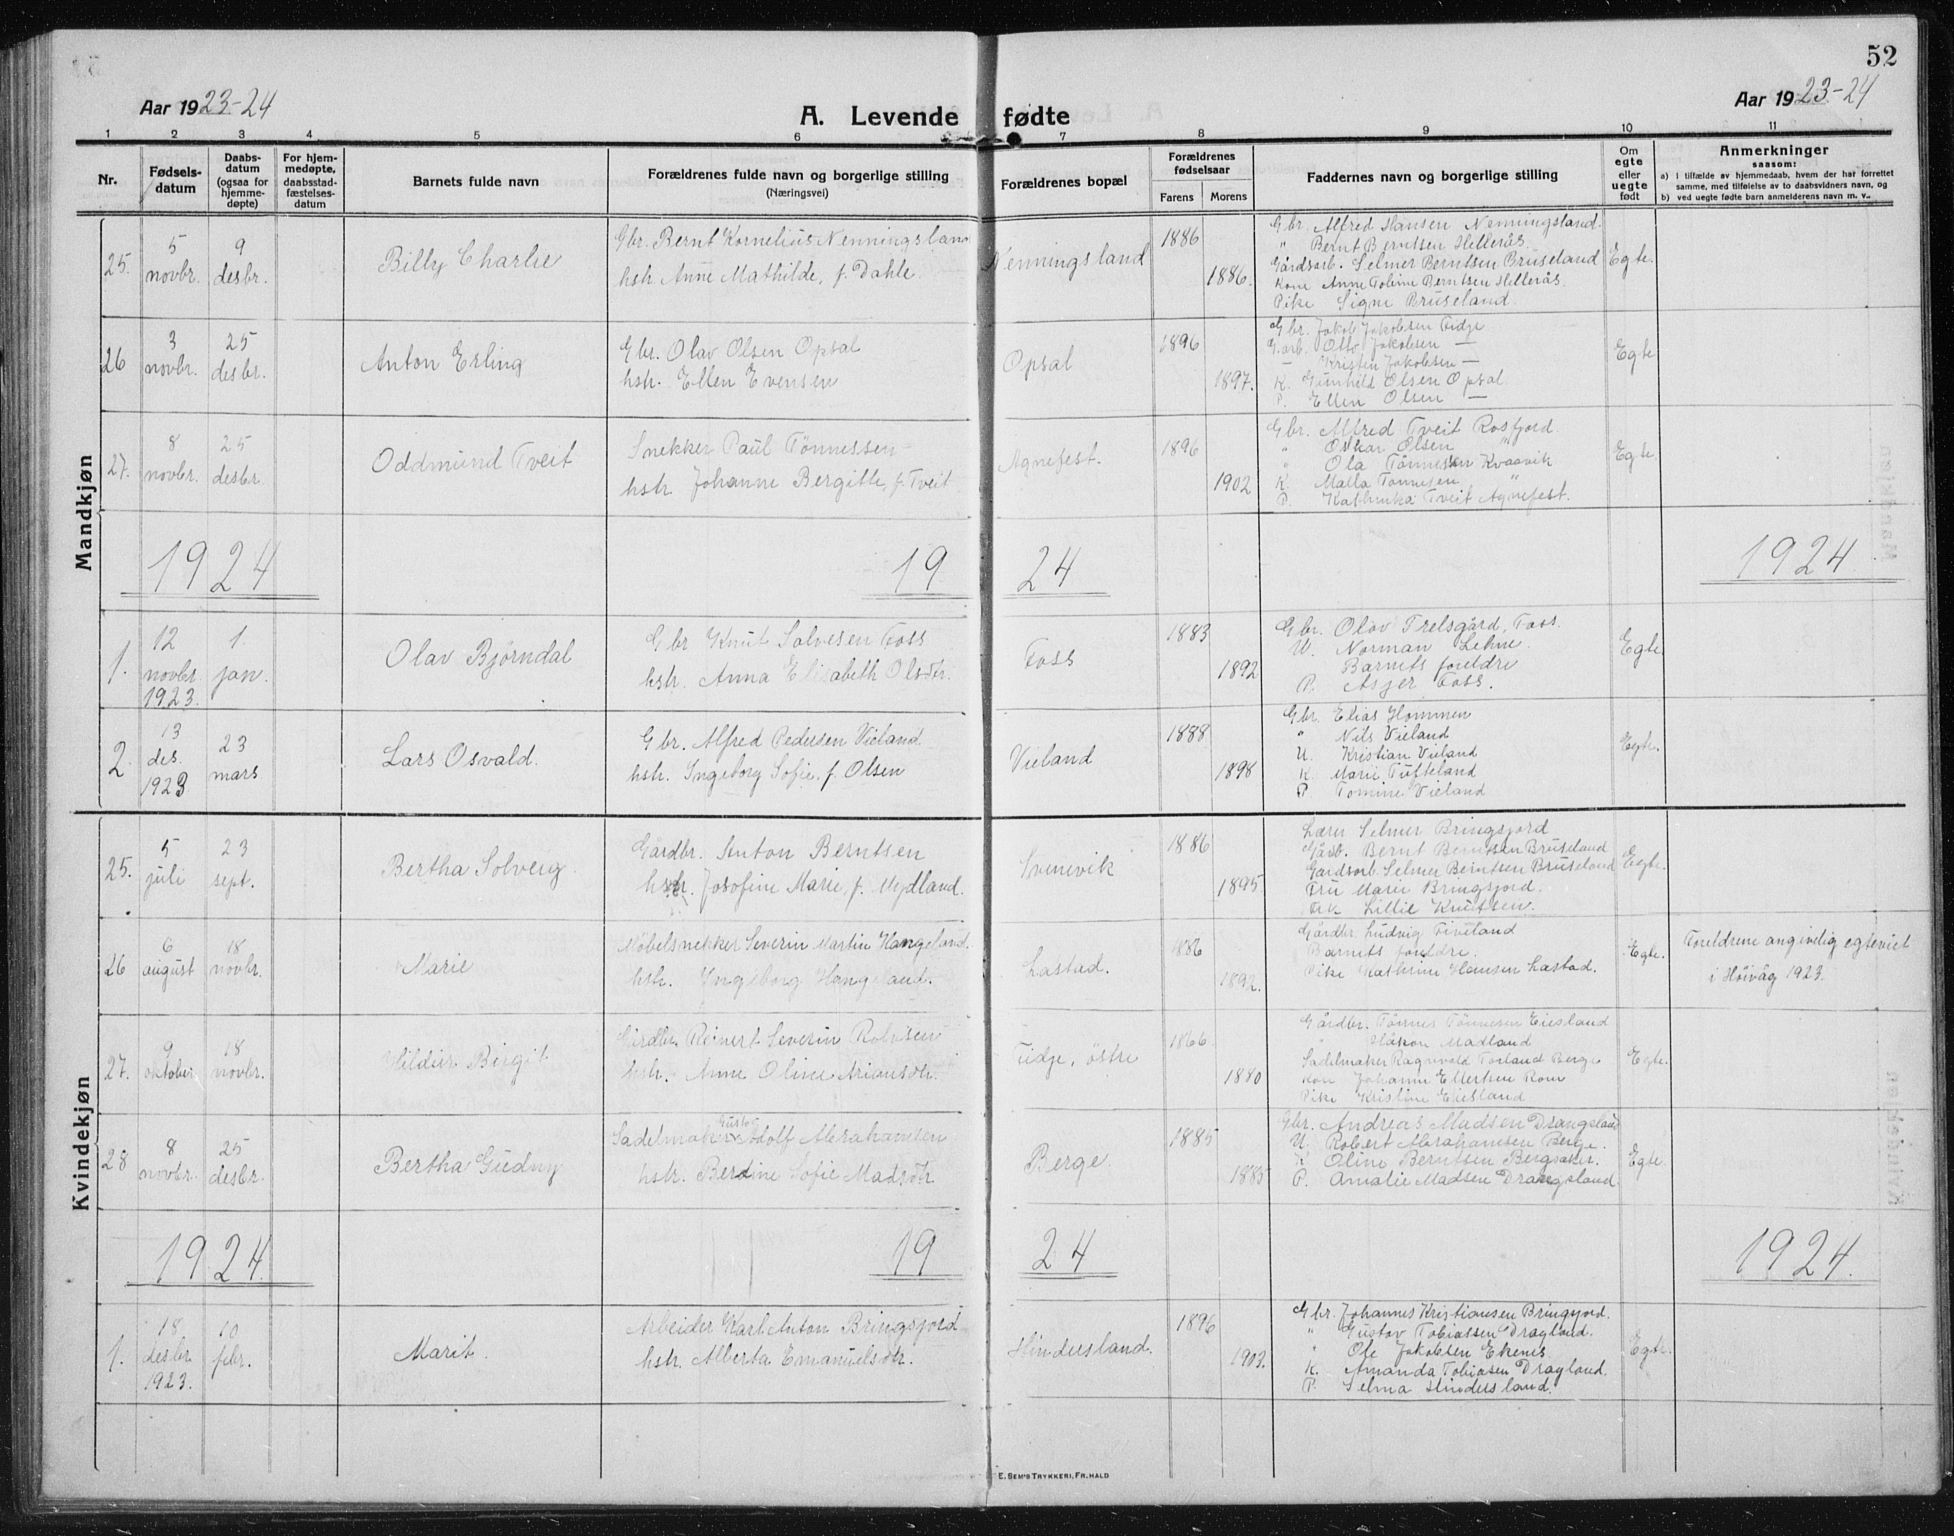 52
Aar 1923-24
A. Levende fødte
Aar 1923-24
1 2 3 4 5 6 7 8 9 10 11
Nr.
Fødsels-
datum
Daabs-
datum
(ogsaa for
hjemme-
døpte)
For hjem-
medøpte,
daabsstad-
fæstelses-
datum
Barnets fulde navn
Forældrenes fulde navn og borgerlige stilling
(Næringsvei)
Forældrenes bopæl
Forældrenes
fødselsaar
Farens Morens
Faddernes navn og borgerlige stilling
Om
egte
eller
uegte
født
Anmerkninger
saasom:
a) I tilfælde av hjemmedaab, hvem der har forrettet
samme, med tilføielse av to daabsvidners navn, og
b) ved uegte fødte barn anmelderens navn m. v..
Mandkjøn
25. 5 novbr. 9 desbr. Billy Charlie
Gbr. Bernt Kornelius Nenningsland
hstr. Anne Mathilde, f. Dahle.
Nenningsland 1886 1886.
Gbr. Alfred Hansen Nenningsland.
" Bernt Berntsen Hellerås.
Gårdsarb. Selmer Berntsen Bruseland
Kone Anne Toline Berntsen Hellerås.
Pike Signe Bruseland.
Egte.
26 3 novbr. 25 desbr. Anton Erling
Gbr. Olav Olsen Opsal
hstr. Ellen Evensen
Opsal 1896 1897.
Gbr. Jakob Jakobsen Fidje
G.arb. Otto Jakobsen —
— Kristen Jakobsen —
K. Gunhild Olsen Opsal.
P. Ellen Olsen —
Egte
27. 8 novbr. 25 desbr. Oddmund Tveit
Snekker Paul Tönnessen
hstr. Johanne Bergitte, f. Tveit
Agnefest. 1896 1902
Gbr. Alfred Tveit Rosfjord.
" Oskar Olsen "
" Ola Tönnessen Kvaavik
K. Malla Tönnesen "
P. Kathinka Tveit Agnefest.
Egte.
1924 19 24 1924
1. 12 novbr. 1923. 1. jan. Olav Bjørndal
Gbr Knut Salvesen Foss
hstr. Anna Elisabeth Olsdtr.
Foss 1883 1892
Gbr. Olav Trelsgård, Foss.
U. Norman Lehne.
Barnets foreldre
P. Asjer Foss.
Egte.
2 13 des. 1923 23 mars Lars Osvald.
Gbr. Alfred Pedersen Vieland.
hstr. Ingeborg Sofie, f. Olsen
Vieland 1888 1898
Gbr. Elias Hommen
" Nils Vieland
U. Kristian Vieland
K. Marie Tufteland
P. Tomine Vieland
Egte.
Kvindekjøn
25. 5 juli 23 sept. Bertha Solveig.
Gårdbr. Anton Berntsen
hstr. Josofine Marie, f. Mydland.
Svenevik 1886 1895.
Lærer Selmer Bringsjord
Gårdb. Bernt Berntsen Bruseland
Gårdsarb. Selmer Berntsen Bruseland
Fru Marie Bringsjord.
Lillie Knutsen.
Egte.
26 6 august 18 novbr. Marie
Møbelsnekker Severin Martin Hangeland.
hstr. Yngeborg Hangeland.
Lastad. 1886 1892.
Gårdbr. Ludvig Fiveland
Barnets foreldre.
Pike Kathrine Hansen Lastad.
Egte.
Foreldrene angivelig egteviet
i Höivåg 1923.
27. 9 oktober 18 novbr. Hildur Birgit
Gårdbr. Reinert Severin Rolvsen
hstr. Anne Oline Ariansdtr.
Fidje, östre 1866 1880
Gårdbr. Tønnes Tønnesen Eiesland
" Håkon Madland
Sadelmaker Ragnvald Torland Berge
Kone Johanne Ellertsen Rom
Pike Kristine Eiesland
Egte.
28 8 novbr. 25 desbr. Bertha Gudny
Sadelmaker Gustav Adolf Abrahamsen
hstr. Berdine Sofie Madsdtr
Berge. 1885 1885
Gbr. Andreas Madsen Drangsland
U. Robert Abrahamsen Berge.
K. Oline Berntsen Bergsaker.
P. Amalie Madsen Drangsland
Egte.
1924. 19 24 1924.
1. 18 desbr 1923. 10 febr. Marit.
Arbeider Karl Anton Bringsjord
hstr. Alberta Emanuelsdtr.
Hindersland. 1896 1903.
Gbr. Johannes Kristiansen Bringsjord.
" Gustav Tobiassen Dragland.
" Ole Jakobsen Ekenes.
K. Amanda Tobiasen Dragland.
P. Selma Hindersland.
Egte.
E. Sem's Trykkeri, Fr.hald